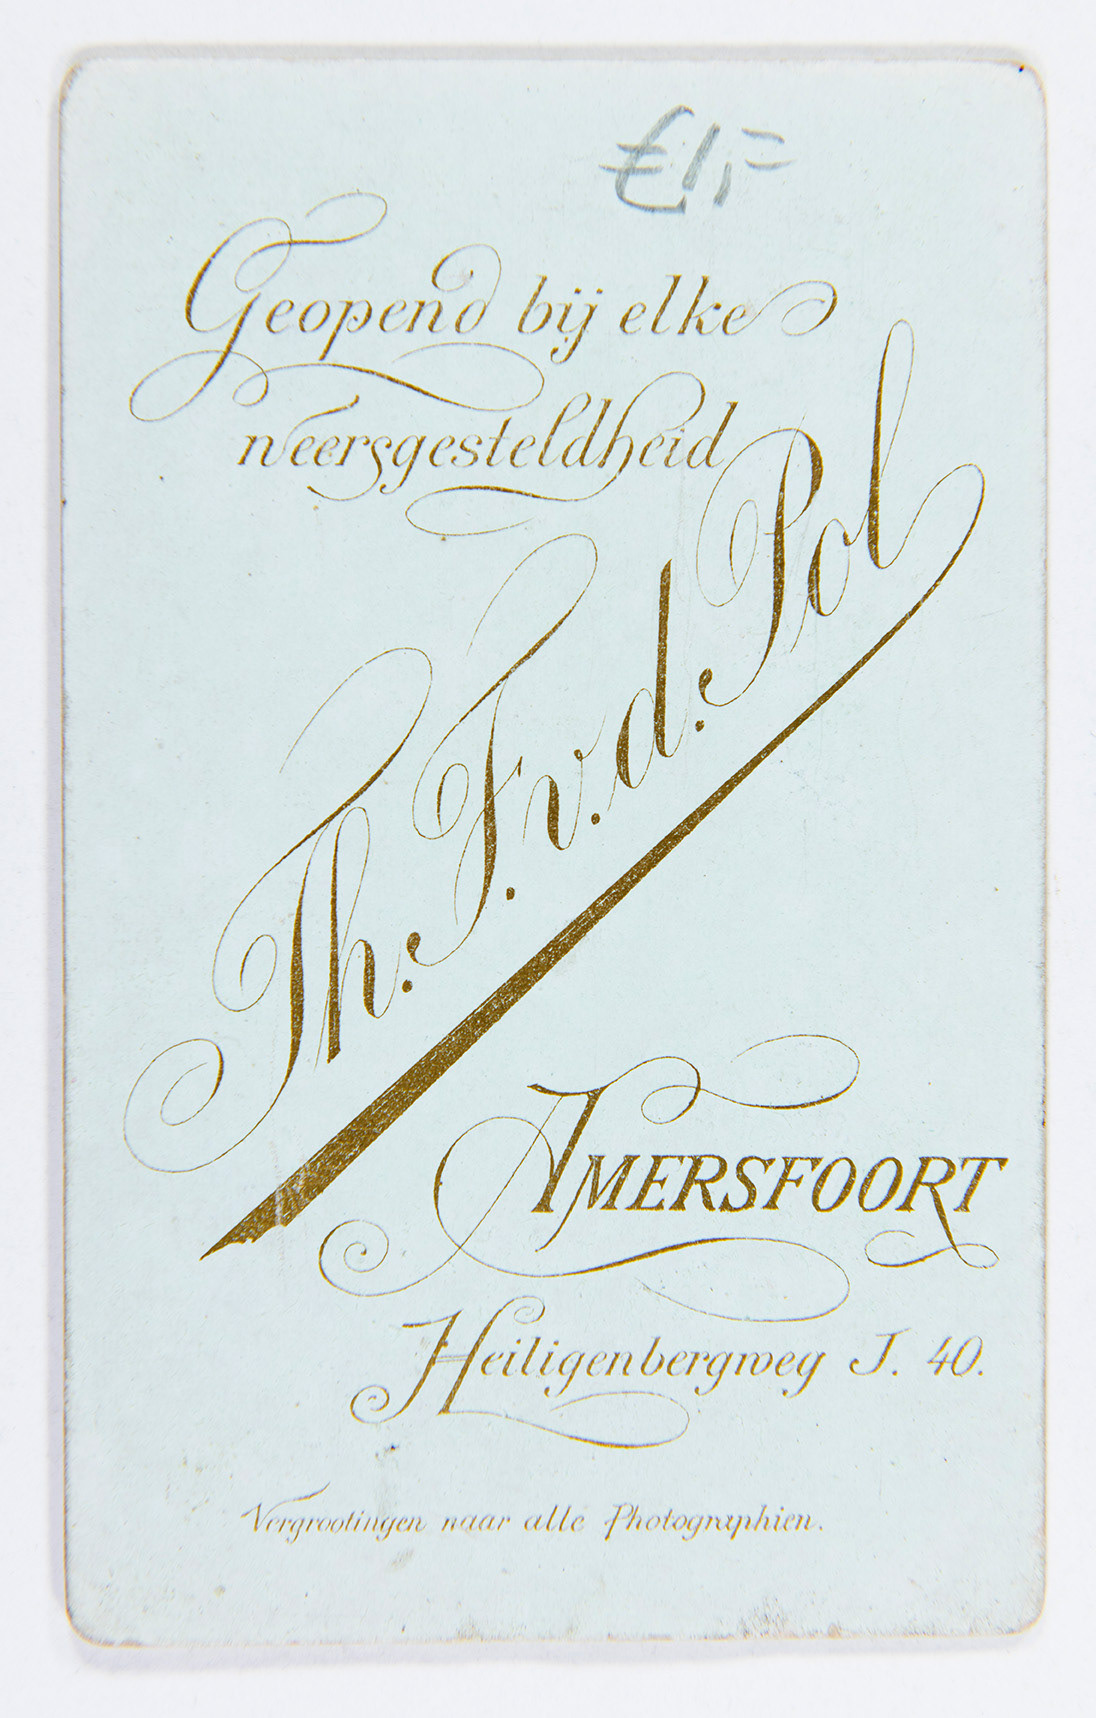 €1,=
Geopend bij elke
weersgesteldheid
Th. F. v. d. Pol
AMERSFOORT
Heiligenbergweg J. 40.
Vergrootingen naar alle Photographien.